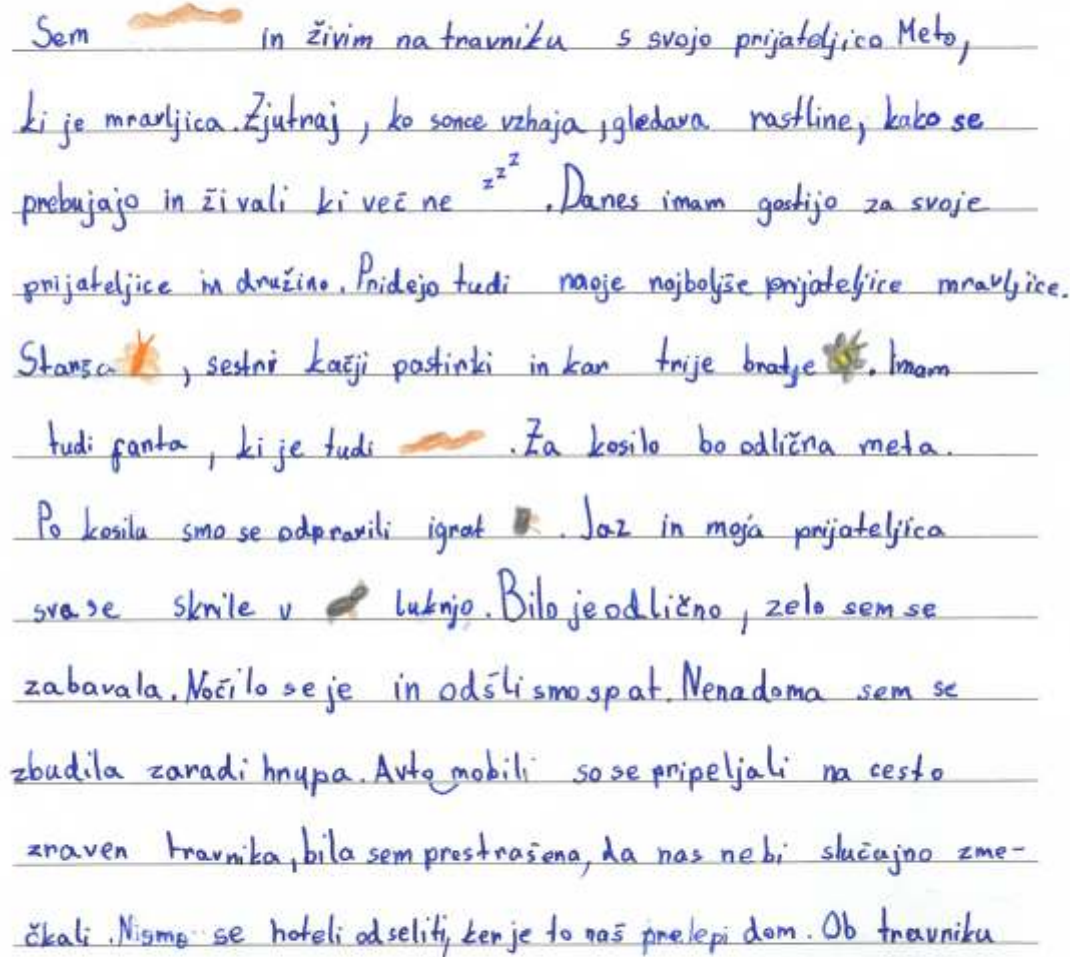 Sem in živim na travniku s svojo prijateljico Meto,
ki je mravljica. Zjutraj, ko sonce vzhaja, gledava rastline, kako se
prebujajo in živali ki več ne zzz. Danes imam gostijo za svoje
prijateljice in družino. Pridejo tudi moje najboljše prijateljice mravljice.
, sestri kačji pastirki in kar trije bratje. Imam
tudi fanta, ki je tudi. Za kosilo bo odlična meta.
Po kosilu smo se odpravili igrat. Jaz in moja prijateljica
sva se skrile v luknjo. Bilo je odlično, zelo sem se
zabavala. Nočilo se je in odšli smo spat. Nenadoma sem se
zbudila zaradi hrupa. Avtomobili so se pripeljali na cesto
zraven travnika, bila sem prestrašena, da nas ne bi slučajno zme-
čkali. Nismo se hoteli odseliti, ker je to naš prelepi dom. Ob travniku